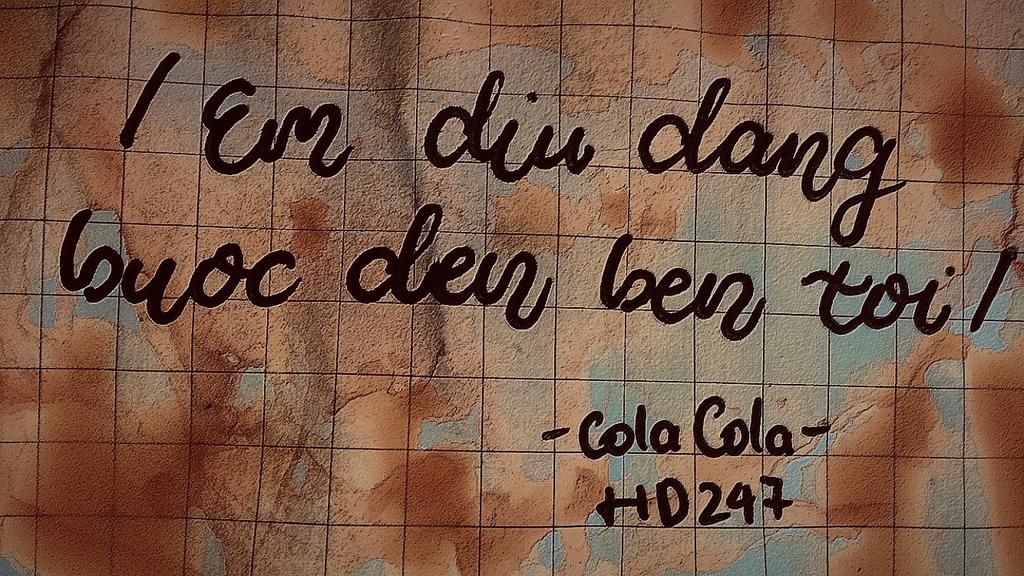 / Em diu dang
buoc den ben toi /
- Cola Cola -
HD247